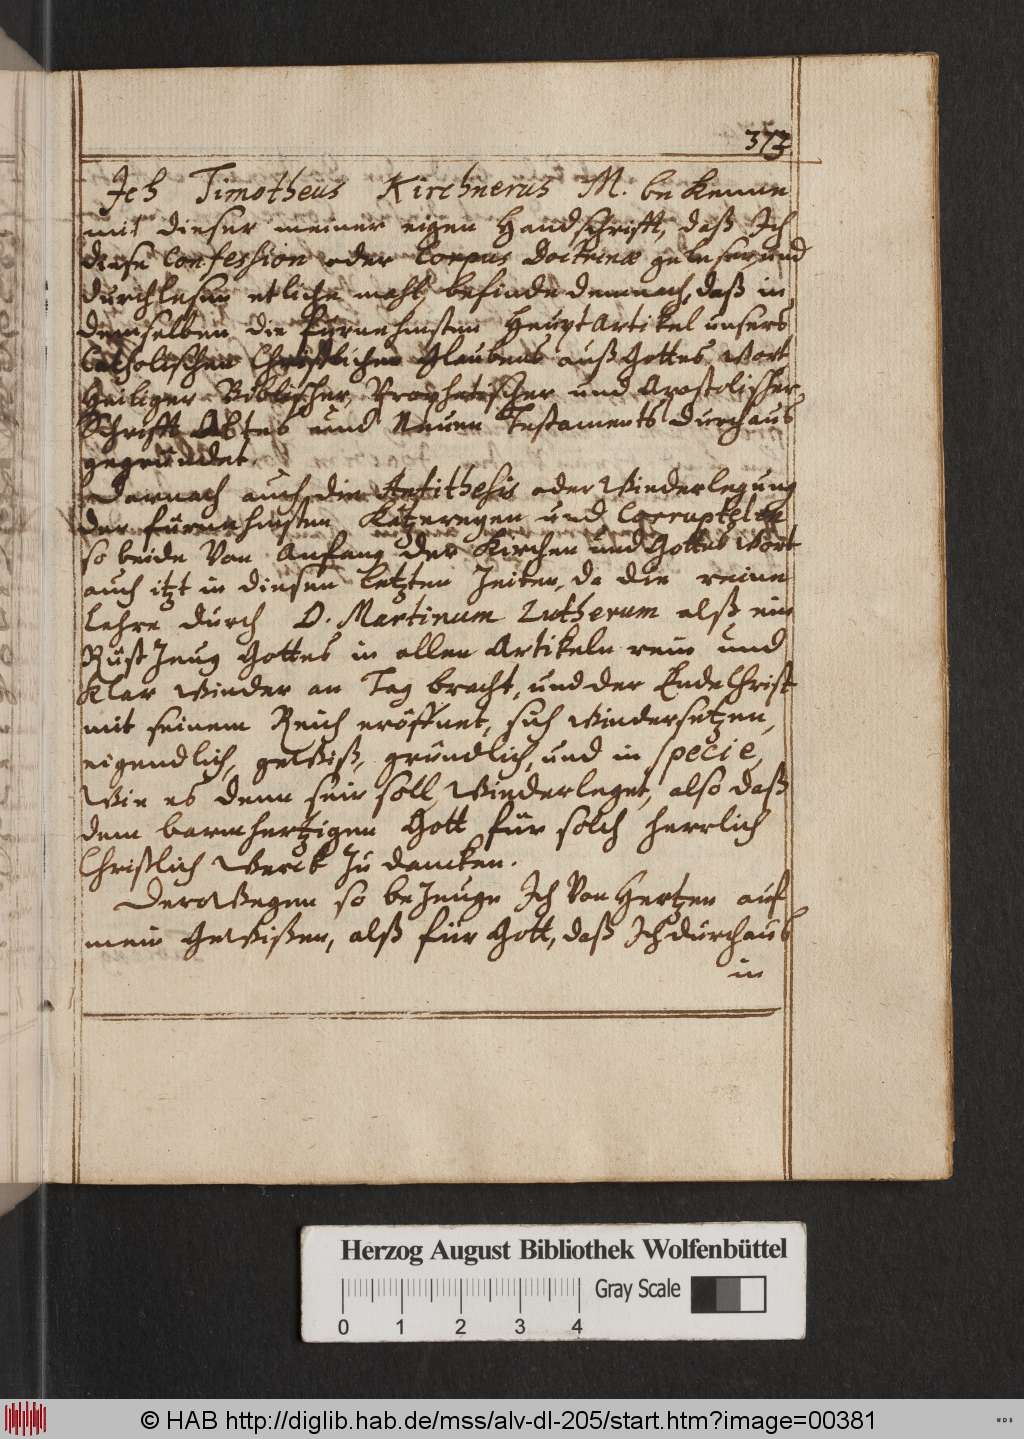 373
Ich Timotheus Kirchnerus M. bekenne
mit dieser meiner eigen Handschrifft, daß Ich
diese Confession oder Corpus Doctrinæ gelesen, und
durchlesen etliche mahl, befinde demnach, daß in
demselben die fürnehmsten Heupt Artikel unsers
Catholischen Christlichen Glaubens auß Gottes Wort
Heiliger Biblischer, Prophetischer und Apostolischer
Schrifft Altes und Neuen Testaments durchaus
gegründet.
Darnach auch die Antithesis oder Wiederlegung
der fürnehmsten Ketzereyen und Corruptelen
so beide von Anfang der Kirchen und Gottes Wort
auch itzt in diesen letzten Zeiten, da die reine
Lehre durch D. Martinum Lutherum alß ein
Rüst Zeug Gottes in allen Artikeln rein und
klar wieder an Tag bracht, und der EndeChrist
mit seinem Reich eröffnet, sich wiedersetzen,
eigendlich, gewiß, gründlich, und in specie,
wie es denn sein soll, wiederleget, also daß
dem barmhertzigen Gott für solch herrlich
Christlich Werck zu dancken.
Derowegen so bezeuge Ich von Hertzen auf
mein Gewißen, alß für Gott, daß Ich durchaus
in
Herzog August Bibliothek Wolfenbüttel
Gray Scale
0 1 2 3 4
© HAB http://diglib.hab.de/mss/alv-dl-205/start.htm?image=00381